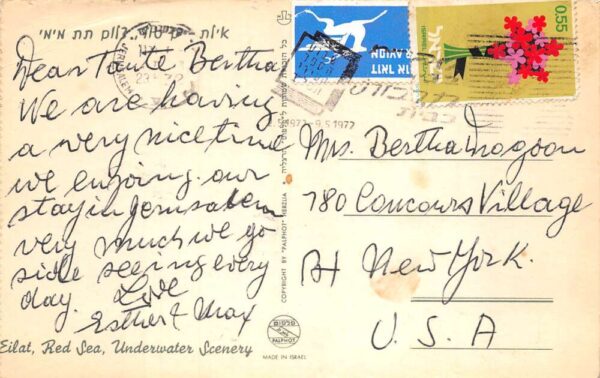 אילת
תת מימי
Dear Tante Bertha
We are having
a very nice time
we enjoing our
stay in Jerusalem
very much we go
side seeing every
day. Love
Esther & Max
Eilat, Red Sea, Underwater Scenery
COPYRIGHT BY "PALPHOT" HERZLIA
פלפוט
PALPHOT
MADE IN ISRAEL
דואר אויר
PAR AVION
ישראל
ISRAEL
0.55
JERUSALEM
9.5.1972
Mrs. Bertha Mogoon
780 Concours Village
New York.
U.S.A